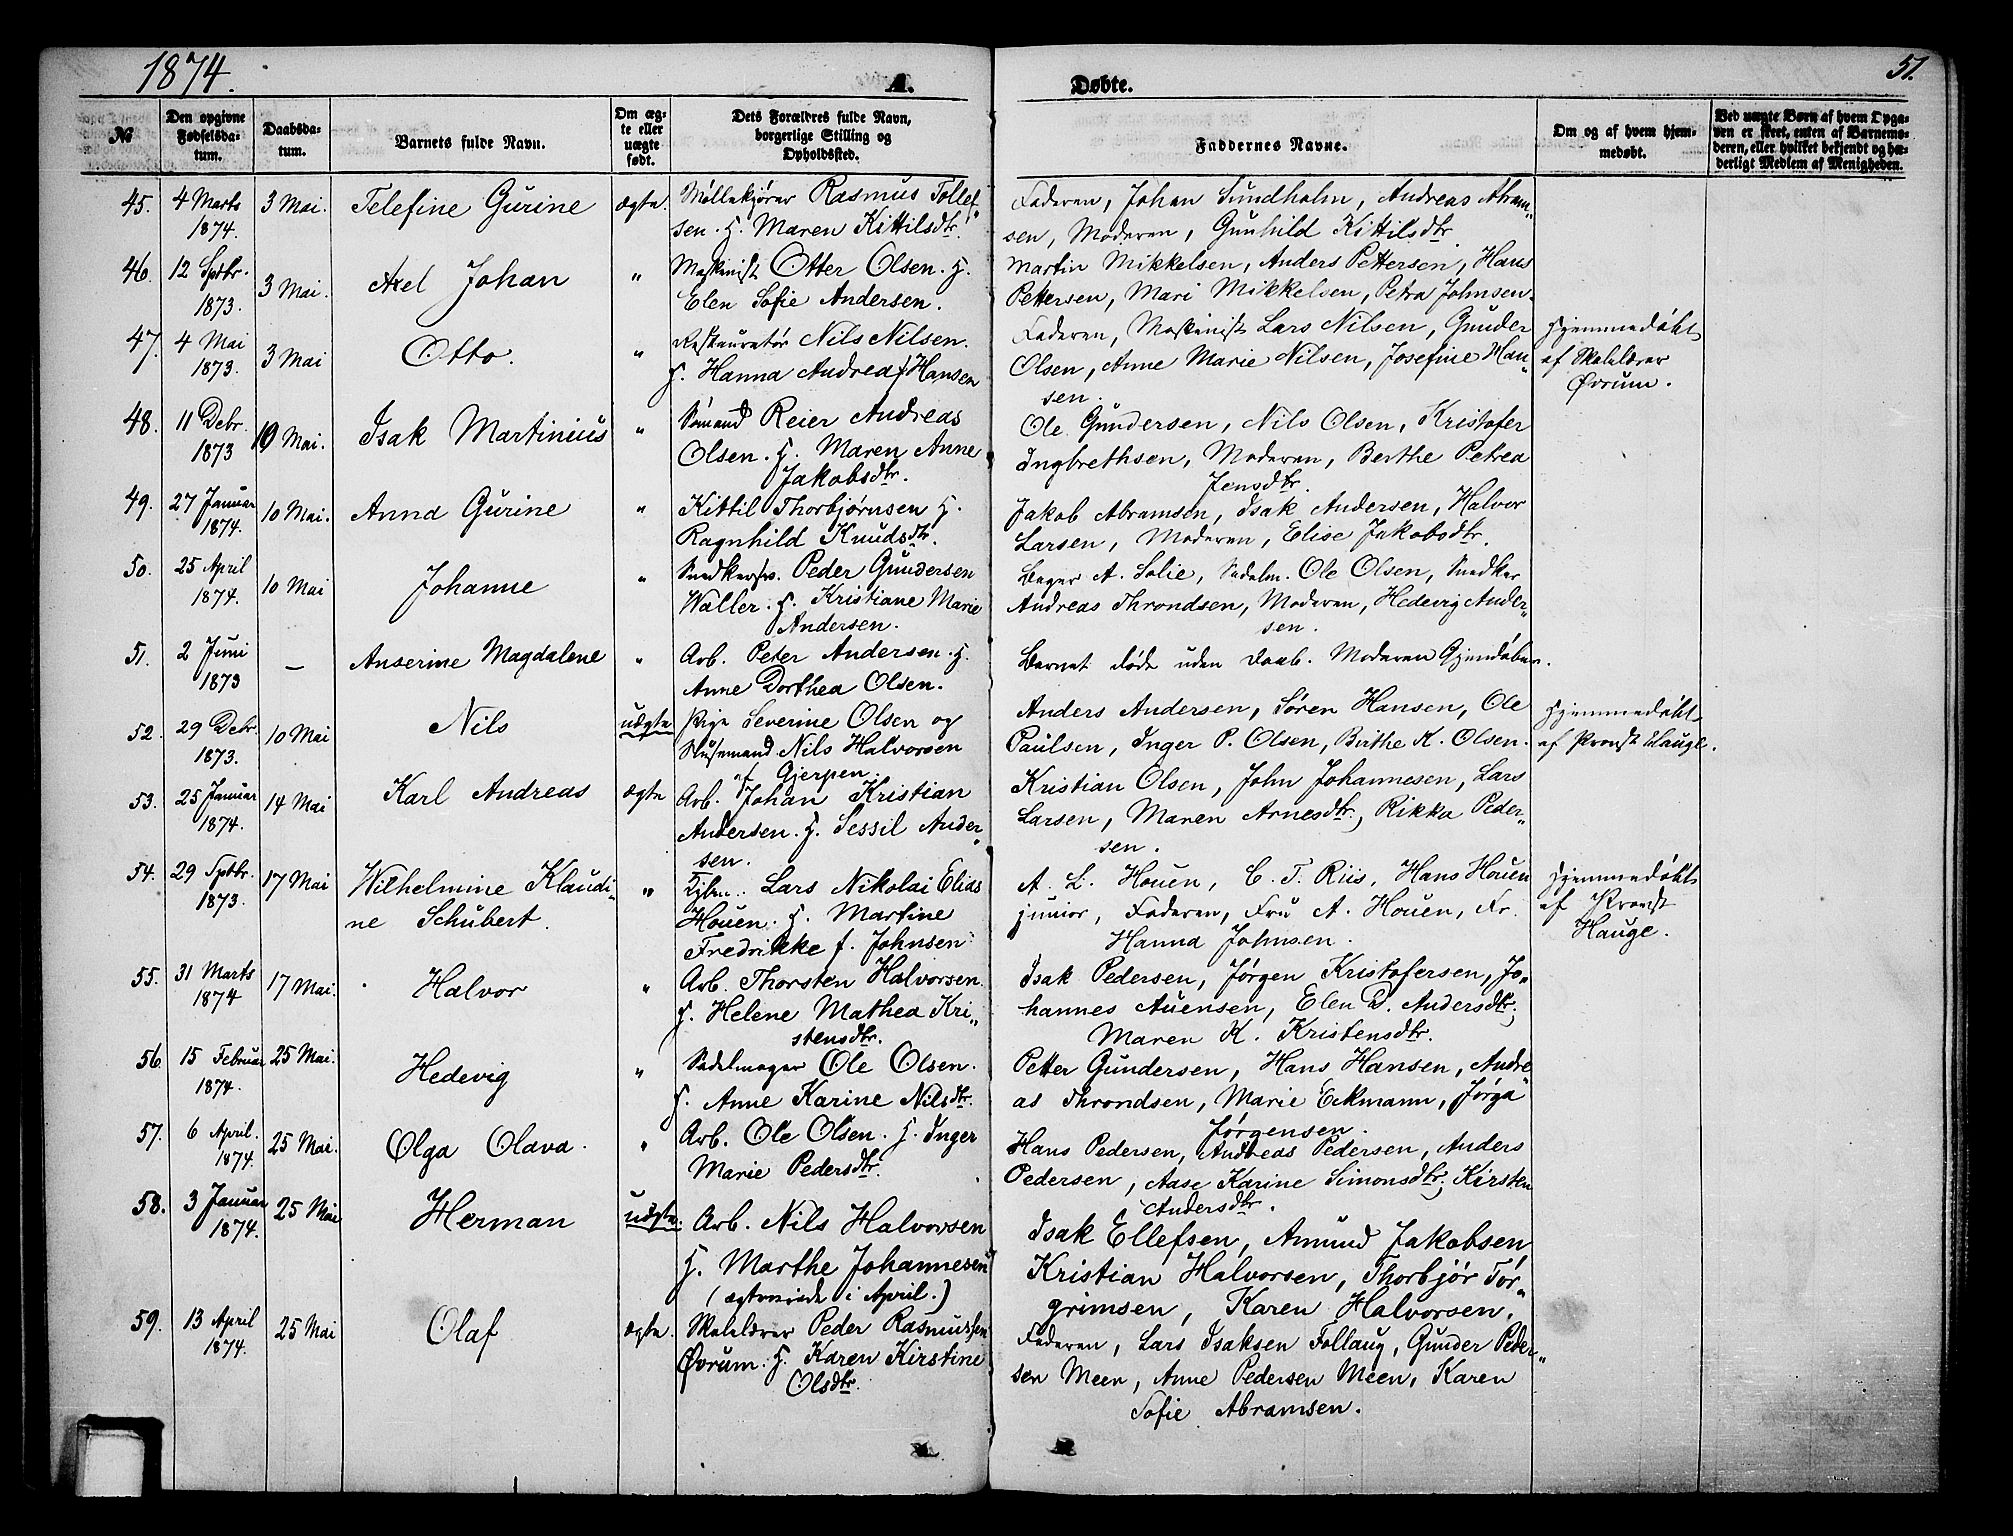 1874.
A. Døbte.
51.
№ Den opgivne Fødselsdatum. Daabsdatum. Barnets fulde Navn. Om ægte eller uægte født. Dets Forældres fulde Navn, borgerlige Stilling og Opholdssted. Faddernes Navne. Om og af hvem hjemmedøbt. Ved uægte Børn af hvem Opgaven er skeet, enten af Barnemoderen, eller hvilket bekjendt og hæderligt Medlem af Menigheden.
45. 4 Marts 1874. 3 Mai. Telefine Gurine ægte. Møllekjører Rasmus Tollef„
sen. H. Maren Kittilsdtr.
Faderen, Johan Sundholm, Andreas Abram„
sen, Moderen, Gunhild Kittilsdtr.
46. 12 Sptbr. 1873. 3 Mai. Axel Johan „ Maskinist Otter Olsen. H.
Elen Sofie Andersen.
Martin Mikkelsen, Anders Pettersen, Hans
Pettersen, Mari Mikkelsen, Petra Johnsen.
47. 4 Mai 1873. 3 Mai Otto. „ Restauratør Nils Nilsen.
H. Hanna Andrea f. Hansen
Faderen, Maskinist Lars Nilsen, Gunder
Olsen, Anne Marie Nilsen, Josefine Han„
sen.
Hjemmedøbt
af Skolelærer
Øvrum.
48. 11 Debr. 1873 10 Mai. Isak Martinius „ Sømand Reier Andreas
Olsen. H. Maren Anne
Jakobsdtr.
Ole Gundersen, Nils Olsen, Kristofer
Ingbrethsen, Moderen, Berthe Petrea
Jensdtr.
49. 27 Januar 1874. 10 Mai. Anna Gurine „ Kittil Thorbjørnsen H.
Ragnhild Knudsdtr.
Jakob Abramsen, Isak Andersen, Halvor
Larsen, Moderen, Elise Jakobsdtr.
50. 25 April 1874. 10 Mai Johanne „ Snedkersv. Peder Gundersen
Waller. H. Kristiane Marie
Andersen.
Bager A. Solie, Sadelm. Ole Olsen, Snedker
Andreas Throndsen, Moderen, Hedevig Ander„
sen.
51. 2 Juni 1873 — Anserine Magdalene „ Arb. Peter Andersen. H.
Anne Dorthea Olsen.
Barnet døde uden Daab. Moderen Gjendøber.
52. 29 Debr. 1873. 10 Mai Nils uægte Pige Severine Olsen og
Husemand Nils Halvorsen
af Gjerpen.
Anders Andersen, Søren Hansen, Ole
Paulsen, Inger P. Olsen, Birthe K. Olsen.
Hjemmedøbt
af Provst Hauge.
53. 25 Januar 1874. 14 Mai Karl Andreas ægte Arb. Johan Kristian
Andersen. H. Sessil Ander„
sen.
Kristian Olsen, John Johannesen, Lars
Larsen, Maren Arnesdtr, Rikka Peder„
sen.
54. 29 Sptbr. 1873. 17 Mai Wilhelmine Klaudi„
ne Schubert. „ Lars Nikolai Elias
Houen. H. Martine
Fredrikke f. Johnsen
A. L. Houen, C. T. Riis, Hans Houen
junior, Faderen, Fru A. Houen, Fr.
Hanna Johnsen.
Hjemmedøbt
af Provst
Hauge.
55. 31 Marts 1874 17 Mai. Halvor „ Arb. Thorsten Halvorsen.
H. Helene Mathea Kri„
stensdtr.
Isak Pedersen, Jørgen Kristofersen, Jo„
hannes Auensen, Elen D. Andersdtr,
Maren K. Kristensdtr.
56. 15 Februar 1874. 25 Mai. Hedevig „ Sadelmager Ole Olsen.
H. Anne Karine Nilsdtr.
Petter Gundersen, Hans Hansen, Andre„
as Throndsen, Marie Eckmann, Jørga
Jørgensen.
57. 6 April. 1874. 25 Mai. Olga Olava. „ Arb. Ole Olsen. H. Inger
Marie Pedersdtr.
Hans Pedersen, Andreas Pedersen, Anders
Pedersen, Aase Karine Simonsdtr, Kirsten
Andersdtr.
58. 3 Januar 1874. 25 Mai Herman uægte. Arb. Nils Halvorsen
H. Marthe Johannesen
(ægteviede i April.)
Isak Ellefsen, Amund Jakobsen,
Kristian Halvorsen, Thorbjør Tor„
grimsen, Karen Halvorsen.
59. 13 April 1874. 25 Mai Olaf ægte. Skolelærer Peder Rasmussen
Øvrum. H. Karen Kirstine
Olsdtr.
Faderen, Lars Isaksen Follaug, Gunder Peder„
sen Meen, Anne Pedersen Meen, Karen
Sofie Abramsen.